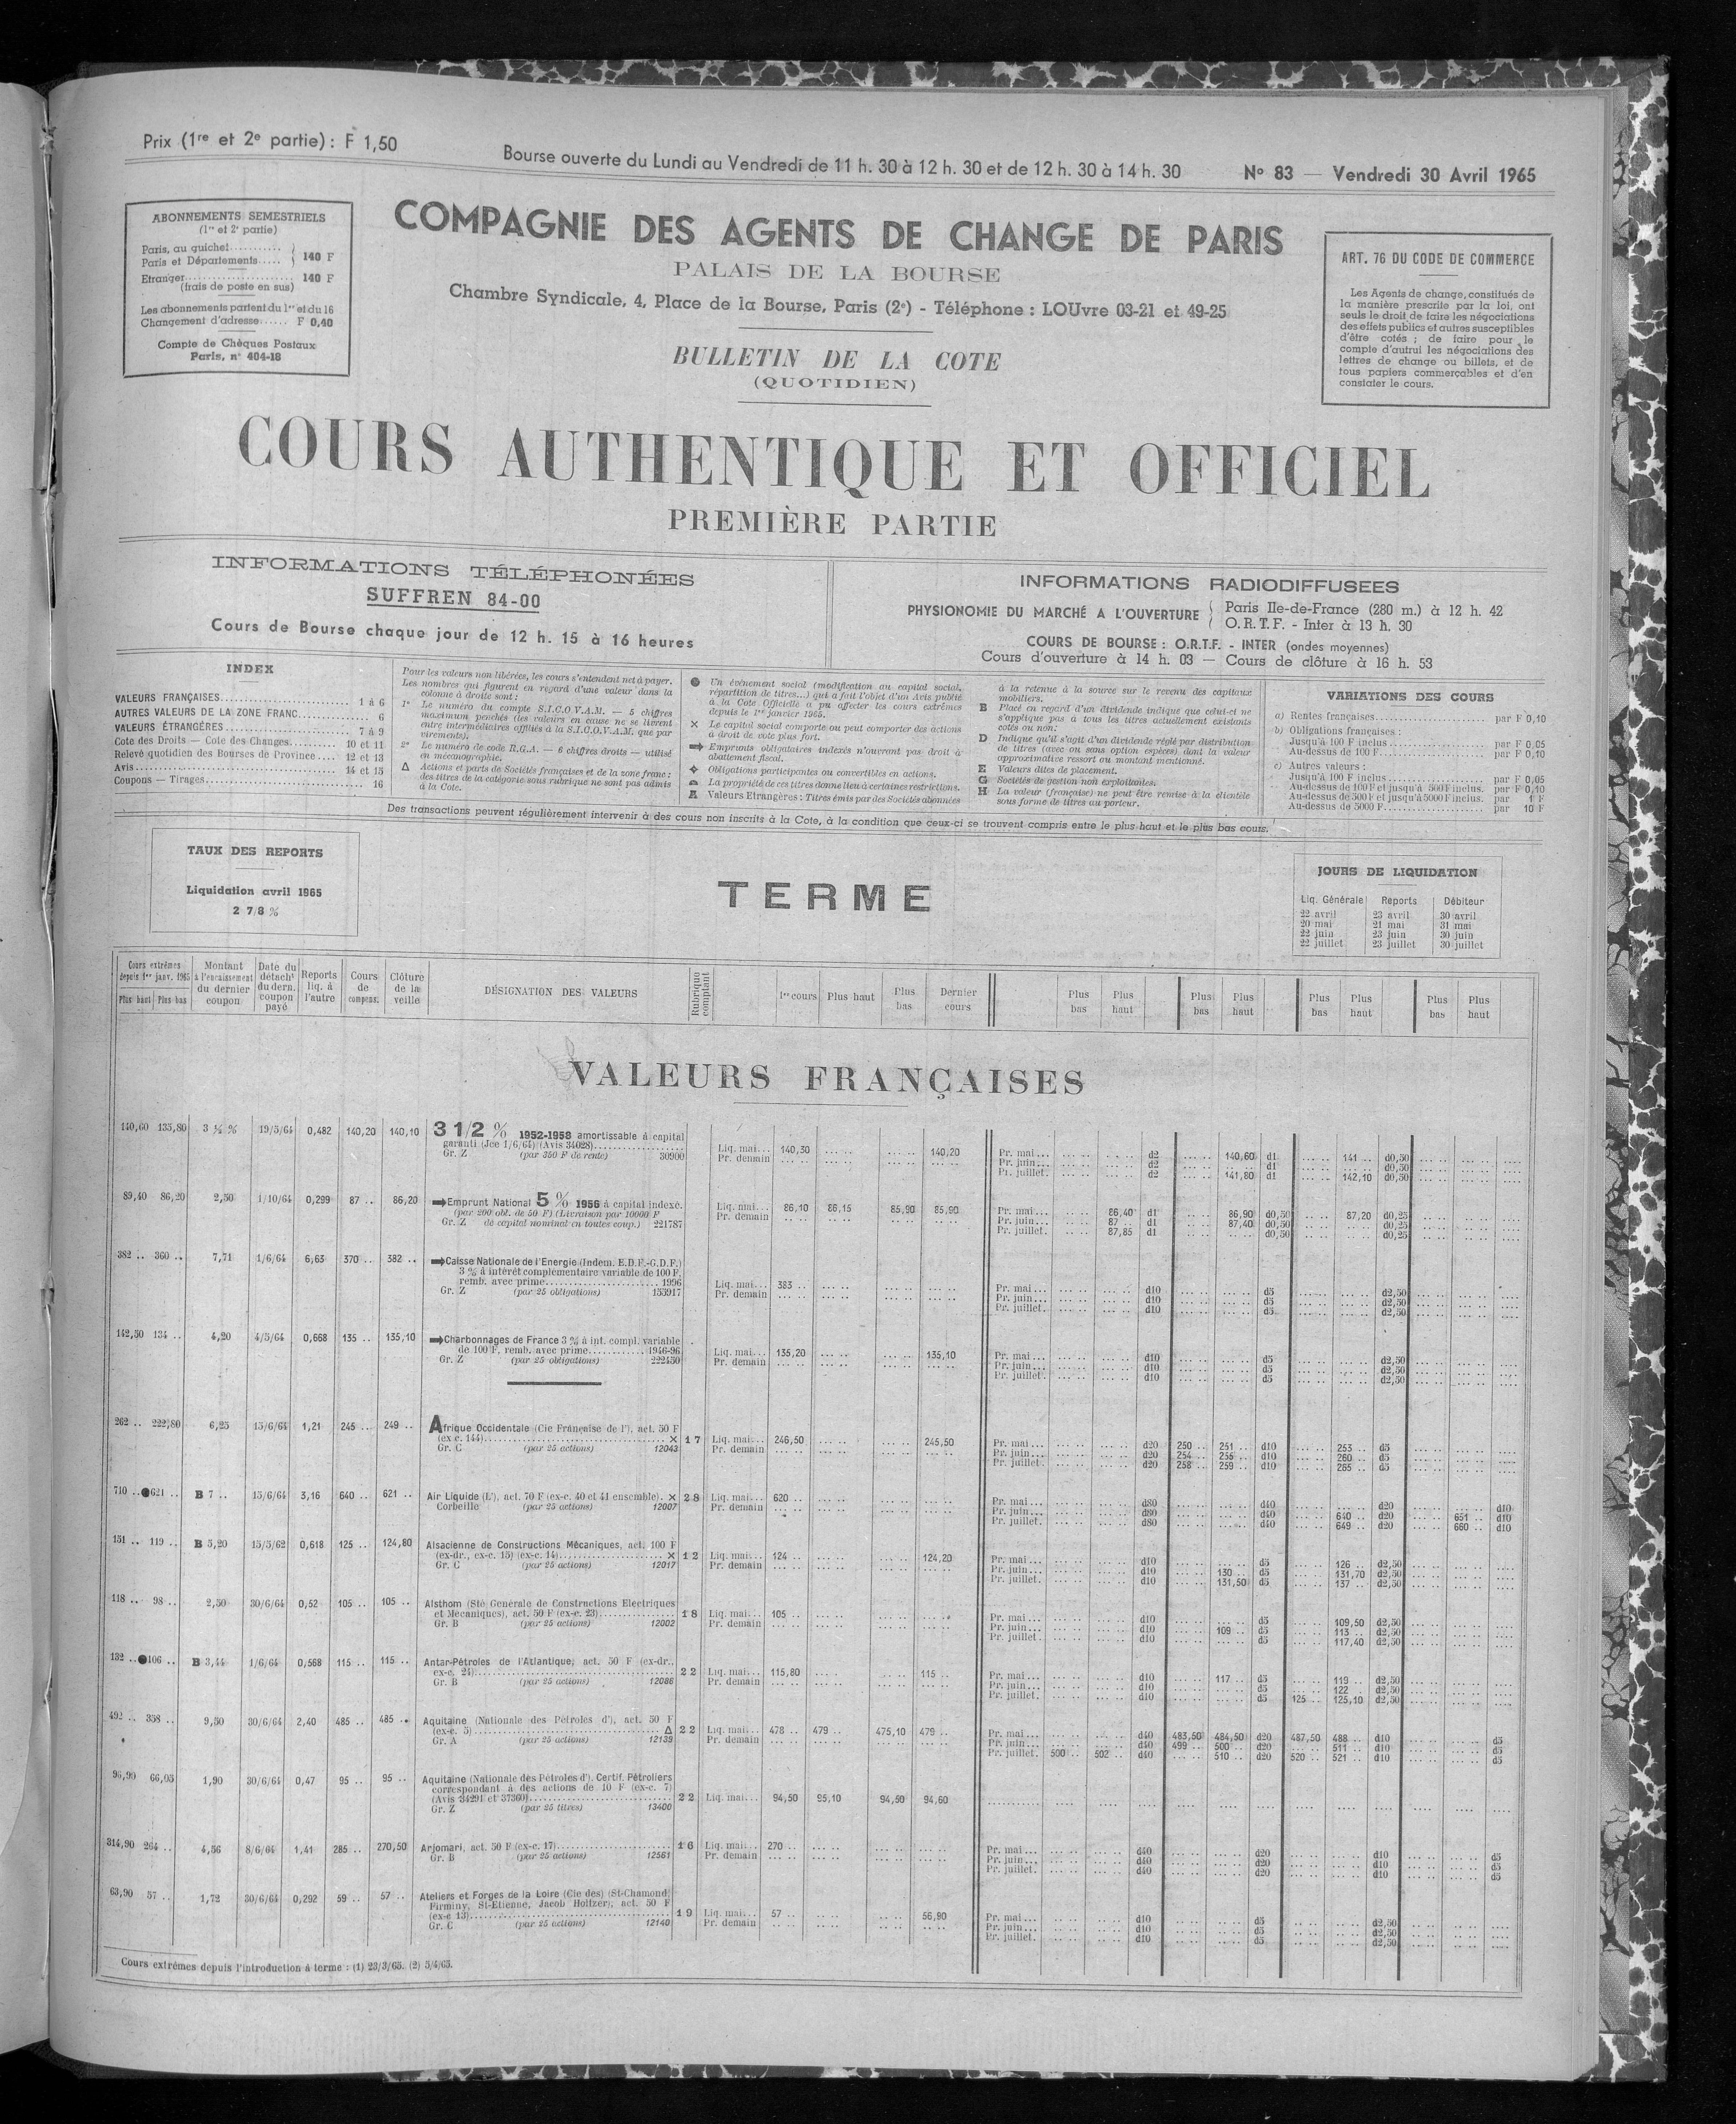 Prix (1re et 2e partie) : F 1,50
Bourse ouverte du Lundi au Vendredi de 11 h. 30 à 12 h. 30 et de 12 h. 30 à 14 h. 30
No 83 — Vendredi 30 Avril 1965
ABONNEMENTS SEMESTRIELS
(1re et 2e partie)
Paris, au guichet...........
Paris et Départements..... } 140 F
Etranger..................... 140 F
(frais de poste en sus)
Les abonnements partent du 1er et du 16
Changement d'adresse...... F 0,40
Compte de Chèques Postaux
Paris, n° 404-18
COMPAGNIE DES AGENTS DE CHANGE DE PARIS
PALAIS DE LA BOURSE
Chambre Syndicale, 4, Place de la Bourse, Paris (2e) - Téléphone : LOUvre 03-21 et 49-25
BULLETIN DE LA COTE
(QUOTIDIEN)
ART. 76 DU CODE DE COMMERCE
Les Agents de change, constitués de
la manière prescrite par la loi, ont
seuls le droit de faire les négociations
des effets publics et autres susceptibles
d'être cotés ; de faire pour le
compte d'autrui les négociations des
lettres de change ou billets, et de
tous papiers commerçables et d'en
constater le cours.
COURS AUTHENTIQUE ET OFFICIEL
PREMIÈRE PARTIE
INFORMATIONS TÉLÉPHONÉES
SUFFREN 84-00
Cours de Bourse chaque jour de 12 h. 15 à 16 heures
INFORMATIONS RADIODIFFUSEES
PHYSIONOMIE DU MARCHÉ A L'OUVERTURE { Paris Ile-de-France (280 m.) à 12 h. 42
O.R.T.F. - Inter à 13 h. 30
COURS DE BOURSE : O.R.T.F. - INTER (ondes moyennes)
Cours d'ouverture à 14 h. 03 — Cours de clôture à 16 h. 53
INDEX
VALEURS FRANÇAISES.............. 1 à 6
AUTRES VALEURS DE LA ZONE FRANC.............. 6
VALEURS ÉTRANGÈRES.............. 7 à 9
Cote des Droits — Cote des Changes.......... 10 et 11
Relevé quotidien des Bourses de Province.... 12 et 13
Avis.............. 14 et 15
Coupons — Tirages.............. 16
Pour les valeurs non libérées, les cours s'entendent net à payer.
Les nombres qui figurent en regard d'une valeur dans la
colonne à droite sont :
1° Le numéro du compte S.I.C.O.V.A.M. — 5 chiffres
maximum penchés (les valeurs en cause ne se livrent
entre intermédiaires affiliés à la S.I.C.O.V.A.M. que par
virements).
2° Le numéro de code R.G.A. — 6 chiffres droits — utilisé
en mécanographie.
Δ Actions et parts de Sociétés françaises et de la zone franc :
des titres de la catégorie sous rubrique ne sont pas admis
à la Cote.
● Un événement social (modification au capital social,
répartition de titres...) qui a fait l'objet d'un Avis publié
à la Cote Officielle a pu affecter les cours extrêmes
depuis le 1er janvier 1965.
× Le capital social comporte ou peut comporter des actions
à droit de vote plus fort.
➡ Emprunts obligataires indexés n'ouvrant pas droit à
abattement fiscal.
✧ Obligations participantes ou convertibles en actions.
La propriété de ces titres donne lieu à certaines restrictions.
A Valeurs Etrangères : Titres émis par des Sociétés abonnées
à la retenue à la source sur le revenu des capitaux
mobiliers.
B Placé en regard d'un dividende indique que celui-ci ne
s'applique pas à tous les titres actuellement existants
cotés ou non.
D Indique qu'il s'agit d'un dividende réglé par distribution
de titres (avec ou sans option espèces) dont la valeur
approximative ressort au montant mentionné.
E Valeurs dites de placement.
G Sociétés de gestion non exploitantes.
H La valeur (française) ne peut être remise à la clientèle
sous forme de titres au porteur.
VARIATIONS DES COURS
a) Rentes françaises.............. par F 0,10
b) Obligations françaises :
Jusqu'à 100 F inclus.............. par F 0,05
Au-dessus de 100 F.............. par F 0,10
c) Autres valeurs :
Jusqu'à 100 F inclus.............. par F 0,05
Au-dessus de 100 F et jusqu'à 500 F inclus. par F 0,10
Au-dessus de 500 F et jusqu'à 5000 F inclus. par 1 F
Au-dessus de 5000 F.............. par 10 F
Des transactions peuvent régulièrement intervenir à des cours non inscrits à la Cote, à la condition que ceux-ci se trouvent compris entre le plus haut et le plus bas cours.
TAUX DES REPORTS
Liquidation avril 1965
2 7/8 %
TERME
JOURS DE LIQUIDATION
Liq. Générale Reports Débiteur
22 avril 23 avril 30 avril
20 mai 21 mai 31 mai
22 juin 23 juin 30 juin
22 juillet 23 juillet 30 juillet
Cours extrêmes depuis 1er janv. 1965 Plus haut Plus bas
Montant à l'encaissement du dernier coupon
Date du détacht du dern. coupon payé
Reports liq. à l'autre
Cours de compens.
Clôture de la veille
DÉSIGNATION DES VALEURS
Rubrique comptant
1er cours Plus haut Plus bas Dernier cours
Plus bas Plus haut Plus bas Plus haut Plus bas Plus haut Plus bas Plus haut
VALEURS FRANÇAISES
140,60 135,80 3 ½ % 19/5/64 0,482 140,20 140,10 3 1/2 % 1952-1958 amortissable à capital
garanti (Jce 1/6/64) (Avis 34028)..............
Gr. Z (par 350 F de rente) 30900
Liq. mai... 140,30 ... ... 140,20
Pr. demain
Pr. mai... d2 140,60 d1 141 .. d0,50
Pr. juin... d2 d1 d0,50
Pr. juillet. d2 141,80 d1 142,10 d0,50
89,40 86,20 2,50 1/10/64 0,299 87 .. 86,20 ➡Emprunt National 5 % 1956 à capital indexé.
(par 200 obl. de 50 F) (Livraison par 10000 F
Gr. Z de capital nominal en toutes coup.) 221787
Liq. mai... 86,10 86,15 85,90 85,90
Pr. demain
Pr. mai... 86,40 d1 86,90 d0,50 87,20 d0,25
Pr. juin... 87 .. d1 87,40 d0,50 d0,25
Pr. juillet. 87,85 d1 d0,50 d0,25
382 .. 360 .. 7,71 1/6/64 6,63 370 .. 382 .. ➡Caisse Nationale de l'Energie (Indem. E.D.F.-G.D.F.)
3 % à intérêt complémentaire variable de 100 F,
remb. avec prime.............. 1996
Gr. Z (par 25 obligations) 153917
Liq. mai... 383 ..
Pr. demain
Pr. mai... d10 d5 d2,50
Pr. juin... d10 d5 d2,50
Pr. juillet. d10 d5 d2,50
142,50 134 .. 4,20 4/5/64 0,668 135 .. 135,10 ➡Charbonnages de France 3 % à int. compl. variable
de 100 F, remb. avec prime............ 1946-96
Gr. Z (par 25 obligations) 222450
Liq. mai... 135,20 135,10
Pr. demain
Pr. mai... d10 d5 d2,50
Pr. juin... d10 d5 d2,50
Pr. juillet. d10 d5 d2,50
262 .. 222,80 6,25 15/6/64 1,21 245 .. 249 .. Afrique Occidentale (Cie Française de l'), act. 50 F
(ex-c. 144).............. × 17
Gr. C (par 25 actions) 12043
Liq. mai... 246,50 245,50
Pr. demain
Pr. mai... d20 250 .. 251 .. d10 253 .. d5
Pr. juin... d20 254 .. 255 .. d10 260 .. d5
Pr. juillet. d20 258 .. 259 .. d10 265 .. d5
710 .. ●621 .. B 7 .. 15/6/64 3,16 640 .. 621 .. Air Liquide (L'), act. 70 F (ex-c. 40 et 41 ensemble). × 28
Corbeille (par 25 actions) 12007
Liq. mai... 620 ..
Pr. demain
Pr. mai... d80 d40 d20 d10
Pr. juin... d80 d40 640 .. d20 651 .. d10
Pr. juillet. d80 d40 649 .. d20 660 .. d10
151 .. 119 .. B 5,20 15/5/62 0,618 125 .. 124,80 Alsacienne de Constructions Mécaniques, act. 100 F
(ex-dr., ex-c. 15) (ex-c. 14).............. × 12
Gr. C (par 25 actions) 12017
Liq. mai... 124 .. 124,20
Pr. demain
Pr. mai... d10 d5 126 .. d2,50
Pr. juin... d10 130 .. d5 131,70 d2,50
Pr. juillet. d10 131,50 d5 137 .. d2,50
118 .. 98 .. 2,50 30/6/64 0,52 105 .. 105 .. Alsthom (Sté Générale de Constructions Electriques
et Mécaniques), act. 50 F (ex-c. 23).............. 18
Gr. B (par 25 actions) 12002
Liq. mai... 105 ..
Pr. demain
Pr. mai... d10 d5 109,50 d2,50
Pr. juin... d10 109 .. d5 113 .. d2,50
Pr. juillet. d10 d5 117,40 d2,50
132 .. ●106 .. B 3,44 1/6/64 0,568 115 .. 115 .. Antar-Pétroles de l'Atlantique, act. 50 F (ex-dr.,
ex-c. 24).............. 22
Gr. B (par 25 actions) 12086
Liq. mai... 115,80 115 ..
Pr. demain
Pr. mai... d10 117 .. d5 119 .. d2,50
Pr. juin... d10 d5 122 .. d2,50
Pr. juillet. d10 d5 125 .. 125,10 d2,50
492 .. 358 .. 9,50 30/6/64 2,40 485 .. 485 .. Aquitaine (Nationale des Pétroles d'), act. 50 F
(ex-c. 5).............. Δ 22
Gr. A (par 25 actions) 12139
Liq. mai... 478 .. 479 .. 475,10 479 ..
Pr. demain
Pr. mai... d40 483,50 484,50 d20 487,50 488 .. d10 d5
Pr. juin... d40 499 .. 500 .. d20 511 .. d10 d5
Pr. juillet. 500 .. 502 .. d40 510 .. d20 520 .. 521 .. d10 d5
96,90 66,05 1,90 30/6/64 0,47 95 .. 95 .. Aquitaine (Nationale des Pétroles d'). Certif. Pétroliers
correspondant à des actions de 10 F (ex-c. 7)
(Avis 34291 et 37360).............. 22
Gr. Z (par 25 titres) 13400
Liq. mai... 94,50 95,10 94,50 94,60
314,90 264 .. 4,56 8/6/64 1,41 285 .. 270,50 Arjomari, act. 50 F (ex-c. 17).............. 16
Gr. B (par 25 actions) 12561
Liq. mai... 270 ..
Pr. demain
Pr. mai... d40 d20 d10 d5
Pr. juin... d40 d20 d10 d5
Pr. juillet. d40 d20 d10 d5
63,90 57 .. 1,72 30/6/64 0,292 59 .. 57 .. Ateliers et Forges de la Loire (Cie des) (St-Chamond,
Firminy, St-Etienne, Jacob Holtzer), act. 50 F
(ex-c 13).............. 19
Gr. C (par 25 actions) 12140
Liq. mai... 57 .. 56,90
Pr. demain
Pr. mai... d10 d5 d2,50
Pr. juin... d10 d5 d2,50
Pr. juillet. d10 d5 d2,50
Cours extrêmes depuis l'introduction à terme : (1) 23/3/65. (2) 5/4/65.